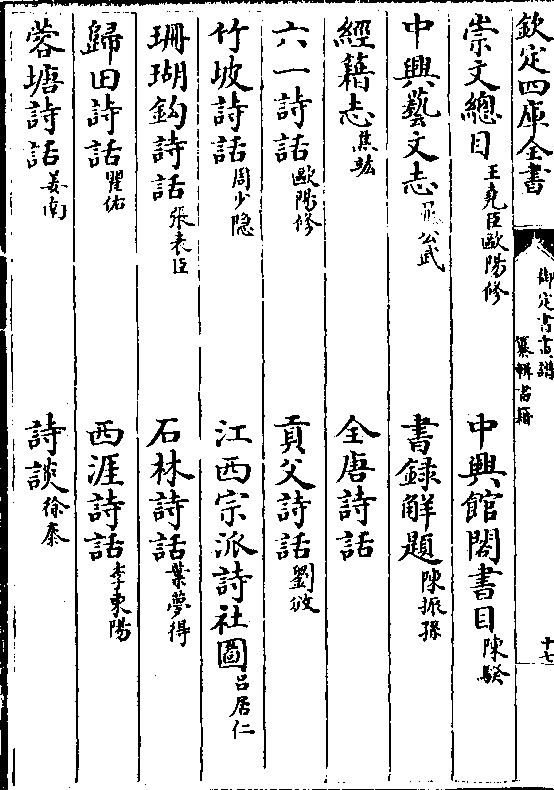 欽定四庫全書
御定書畫譜
纂輯書籍
十七
崇文總目 王堯臣歐陽修 中興館閣書目 陳騤
中興藝文志 公武 書録解題 陳振孫
經籍志 焦竑 全唐詩話
六一詩話 歐陽修 貢父詩話 劉攽
竹坡詩話 周少隐 江西宗派詩社圖 吕居仁
珊瑚鈎詩話 張表臣 石林詩話 葉夢得
歸田詩話 瞿佑 西涯詩話 李東陽
蓉塘詩話 姜南 詩談 徐泰